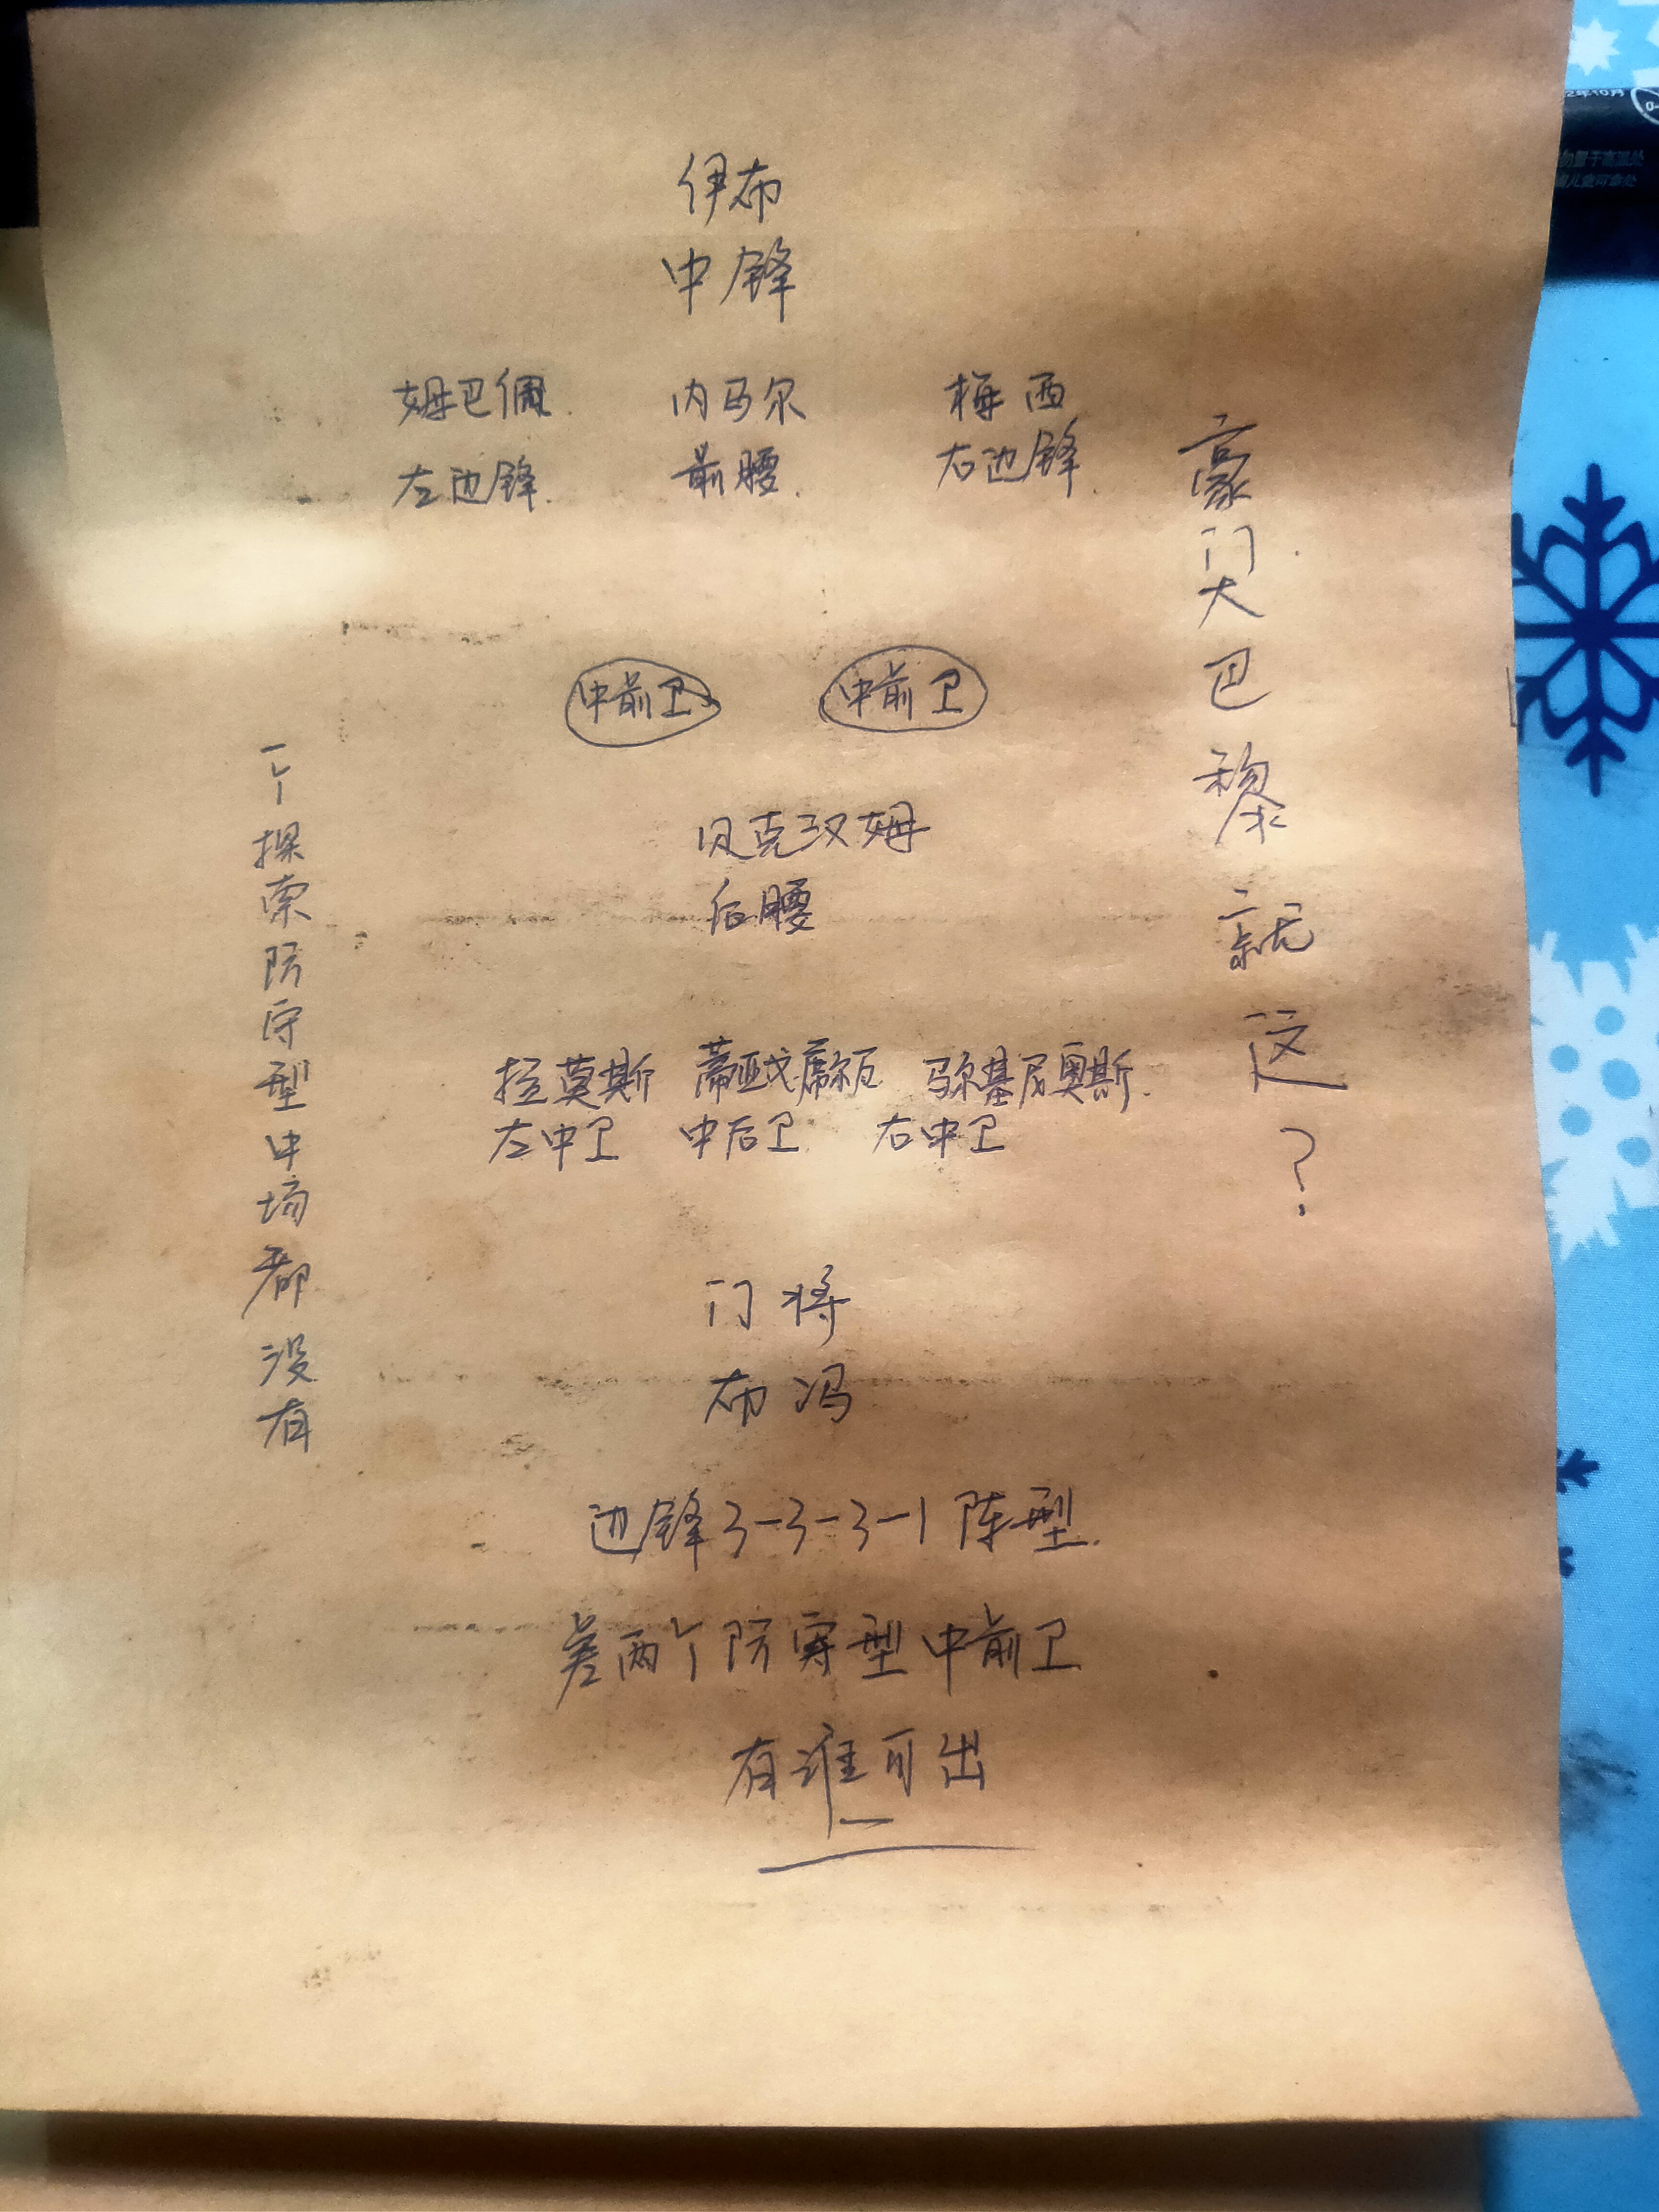 伊布
中锋
姆巴佩 内马尔 梅西
左边锋 前腰 右边锋
中前卫 中前卫
贝克汉姆
后腰
拉莫斯 蒂亚戈席尔瓦 马尔基尼奥斯
左中卫 中后卫 右中卫
门将
布冯
边锋3-3-3-1阵型
差两个防守型中前卫
有谁可出
豪门大巴黎就这?
一个探索防守型中场都没有
2年10月
勿置于高温处